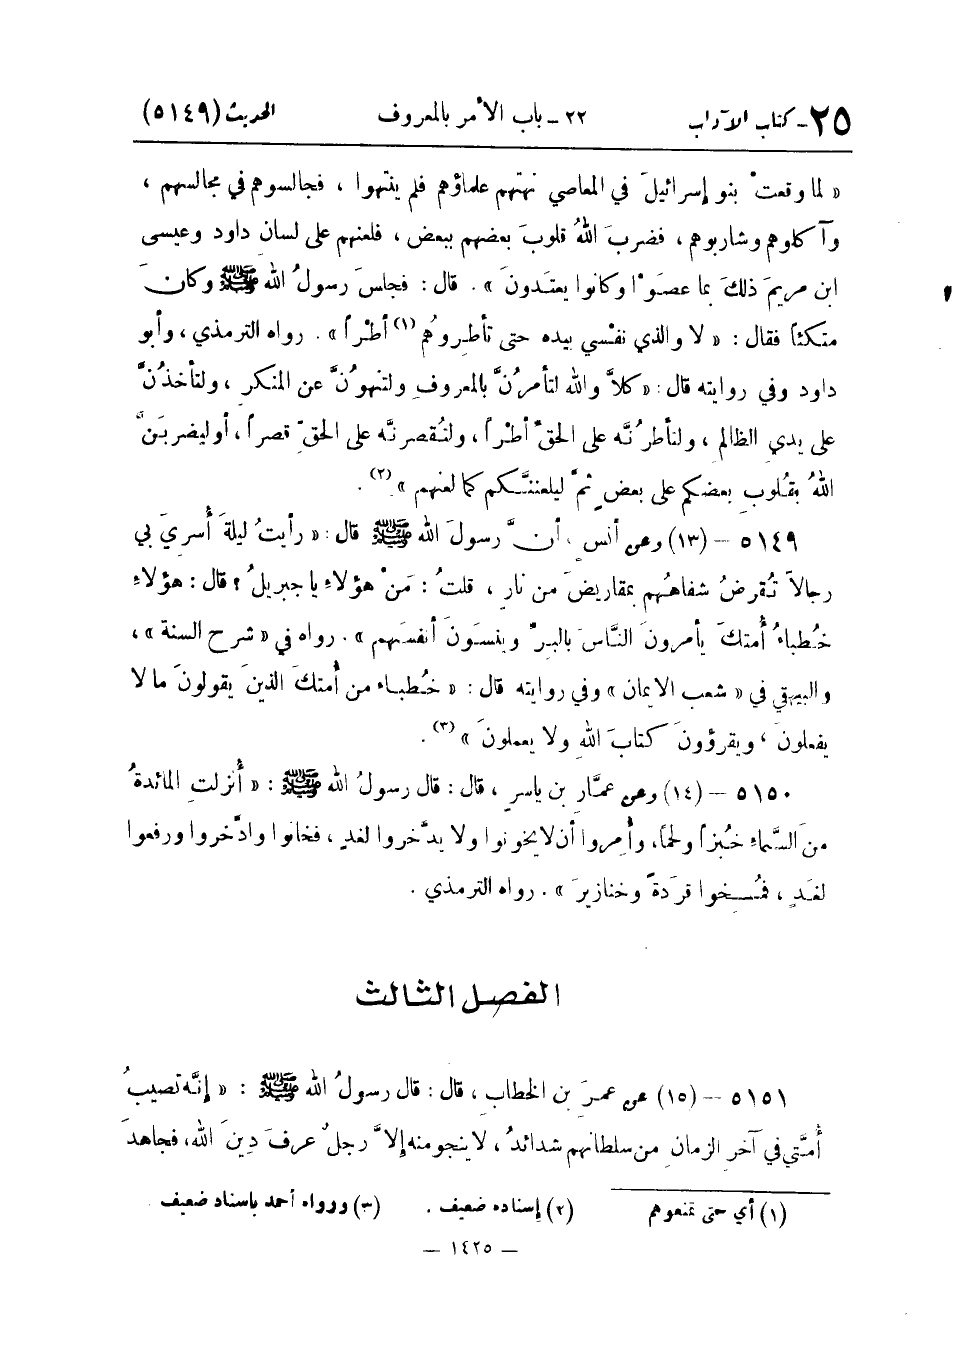 ٢٥ - كتاب الآداب ٢٢ - باب الأمر بالمعروف الحديث (٥١٤٩)
« لما وقعتْ بنو إسرائيلَ في المعاصي نهتهم علماؤهم فلم ينتهوا ، فجالسوهم في مجالسهم ،
وآكلوهم وشاربوهم ، فضربَ اللهُ قلوبَ بعضهم ببعض ، فلعنهم على لسان داود وعيسى
ابن مريمَ ذلكَ بما عصَوْا وكانوا يعتدونَ » . قال : فجلسَ رسولُ الله ﷺ وكانَ
متكئاً فقال : « لا والذي نفْسي بيده حتى تأطِروهُم (١) أطْراً » . رواه الترمذي ، وأبو
داود وفي روايته قال : « كلاَّ والله لتأمرُنَّ بالمعروفِ ولتنهوُنَّ عن المنكر ، ولتأخذُنَّ
على يدي الظالم ، ولتأطرُنَّه على الحقِّ أطْراً ، ولتُقصرنَّه على الحقِّ قصراً ، أوليضربَنَّ
اللهُ بقُلوبِ بعضكم على بعضٍ ثمَّ ليلعننَّكم كما لعنهم » (٢) .
٥١٤٩ - (١٣) وعن أنسٍ ، أنَّ رسولَ الله ﷺ قال : « رأيتُ ليلةَ أُسريَ بي
رجالاً تُقرضُ شفاهُهم بمقاريضَ من نارٍ ، قلتُ : مَنْ هؤلاءِ يا جبريلُ ؟ قال : هؤلاءِ
خُطباءُ أُمتكَ يأمرونَ النَّاسَ بالبرِّ وينسَونَ أنفسَهم » . رواه في « شرح السنة » ،
والبيهقي في « شعب الايمان » وفي روايته قال : « خُطبـاء من أُمتكَ الذينَ يقولونَ ما لا
يفعلونَ ، ويقرؤونَ كتابَ اللهِ ولا يعملونَ » (٣) .
٥١٥٠ - (١٤) وعن عمَّارِ بن ياسرٍ ، قال : قال رسولُ الله ﷺ : « أُنزلتِ المائدةُ
منَ السَّماءِ خُبزاً ولحماً ، وأُمِروا أن لا يخونوا ولا يدَّخروا لغدٍ ، فخانوا وادَّخروا ورفعوا
لغَدٍ ، فمُسـخوا قردَةً وخنازيرَ » . رواه الترمذي .
الفصل الثالث
٥١٥١ - (١٥) عن عمرَ بن الخطابِ ، قال : قال رسولُ الله ﷺ : « إِنَّه تصيبُ
أُمَّتي في آخرِ الزمان من سلطانهم شدائدُ ، لا ينجو منه إلاَّ رجلٌ عرفَ دِينَ الله ، فجاهدَ
(١) أي حتى تمنعوهم (٢) إسناده ضعيف . (٣) ورواه أحمد باسناد ضعيف .
— ١٤٢٥ —